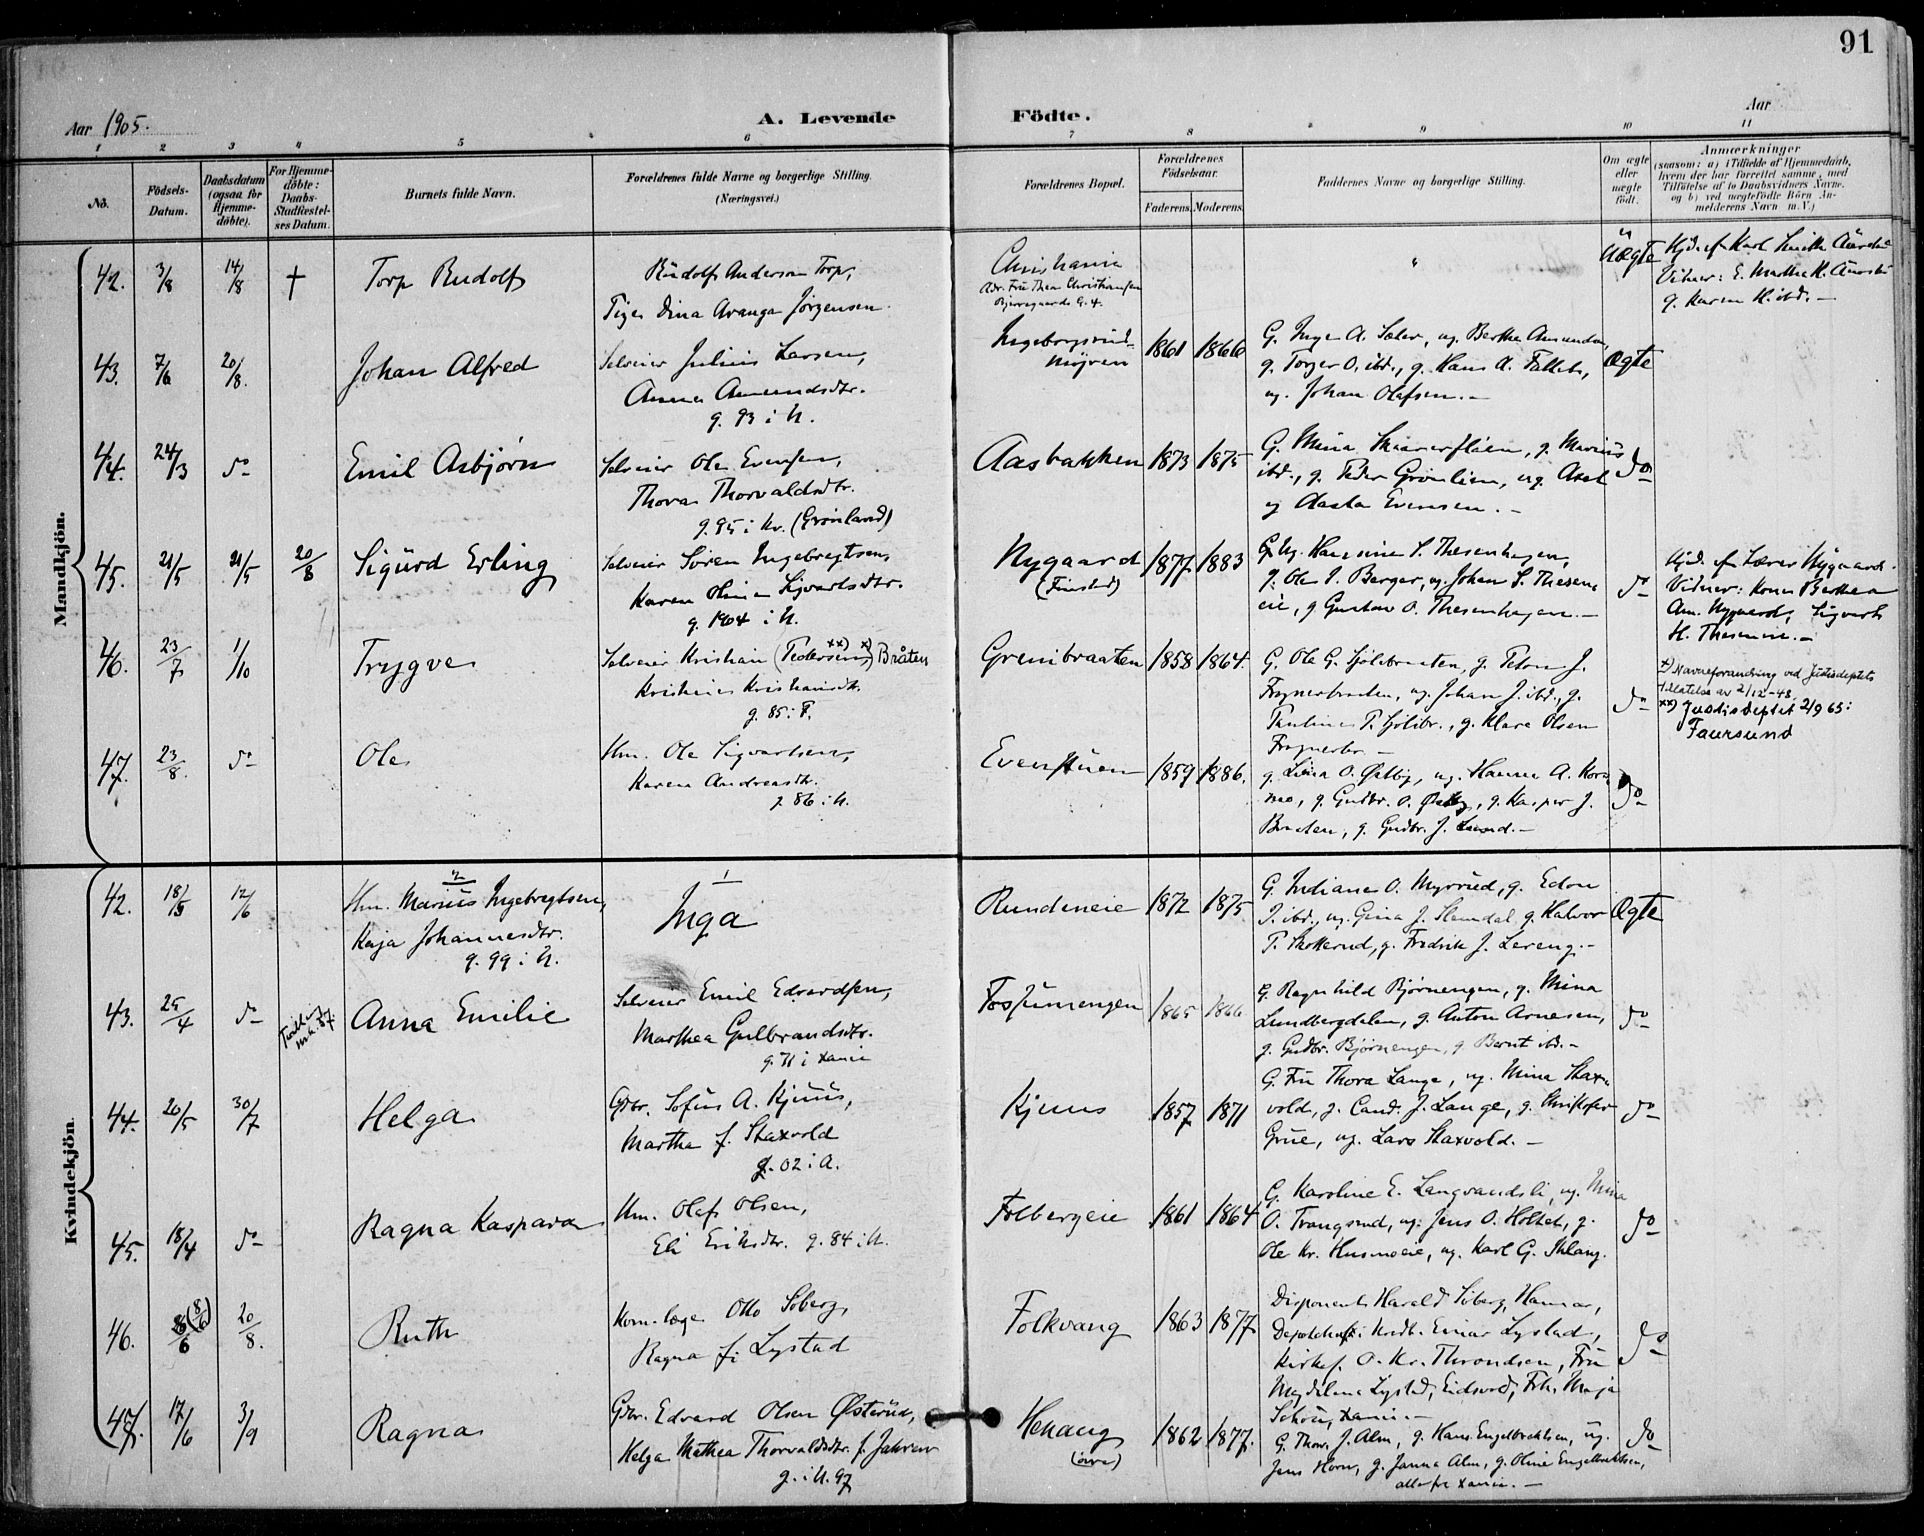 91
Aar 1905.
A. Levende Födte.
Aar
1 2 3 4 5 6 7 8 9 10 11
No.
Födsels-Datum.
Daabsdatum (ogsaa for Hjemmedöbte).
For Hjemmedöbte: Daabs-Stadfæstelses Datum.
Barnets fulde Navn.
Forældrenes fulde Navne og borgerlige Stilling.
(Næringsvei.)
Forældrenes Bopæl.
Forældrenes Födselsaar.
Faderens. Moderens.
Faddernes Navne og borgerlige Stilling.
Om ægte eller uægte födt.
Anmærkninger
(saasom: a) i Tilfælde af Hjemmedaab,
hvem der har forrettet samme, med
Tilföielse af to Daabsvidners Navne,
og b) ved uægtefödte Börn An-
melderens Navn m. V.)
Mandkjön.
42. 3/8 14/8 † Torp Rudolf
Rudolf Anderson Torp,
Pige Dina Aranga Jørgensen
Christiania
Adr. Fru Thea Christiansen
Bjerregaards G. 4.
" Uægte
Hjd. af Karl
g. Karen H. ibd. –
43. 7/6 20/8. Johan Alfred
Selveier Julius Larsen,
Anna Amundsdtr.
g. 93 i U.
mÿren 1861 1866
G. Inga A. Sæter, ug. Berthe Amundsen,
g. Torger O. ibd., g. Hans A.
ug. Johan Olafsen. –
Ægte
44. 24/3 do Emil Asbjørn
Selveier Ole Evensen,
Thora Thorvaldsdtr.
g. 95 i Kr. (Grønland)
Aasbakken 1873 1875
G. Mina g. Marius
ibd., g. Peder Grønlien, ug. Axel
og Aasta Evensen. –
do
45. 21/5 21/5 20/8 Sigurd Erling
Selveier Søren Ingebregtsen,
Karen Oline Sigvartsdtr.
g. 1904 i U.
Nygaard
(Finstad)
1877 1883
G. Ug. Hansine S. Thesenhagen,
g. Ole I. Berger, ug. Johan S. Thesen-
eie, g Gustav O. Thesenhagen. –
do
Hjd. af Lærer Nygaard.
Vidner: Kone Berthea
Am. Nygaard, Sigvart
H. Theseneie. –
46. 23/7 1/10 Trygve
Selveier Kristian (Pedersen) xx) x) Bråten
Kristine Kristiansdtr.
g. 85 i F.
Grenibraaten 1858 1864.
G. Ole G. Sjølibraaten, g. Peton J.
Frognerbraaten, ug. Johan J. ibd., g.
Pauline P. Sjølibr., g. Klara Olsen
Frognerbr. –
do
x) Navneforandring ved Justisdeptets
tillatelse av 2/12-48.
xx) Justisdeptet 2/9 65:
Faursund
47. 23/8. do Ole
Hm. Ole Sigvartsen,
Karen Andreasdtr.
g 86 i U.
Evenstuen 1859 1886.
g. Lina O. Østby, ug. Hanna A. Kors-
mo, g. Gudbr. O. Østby, g. Kasper J.
Braaten, g. Gudbr. J. Lund. –
do
Kvindekjön.
42. 18/5 12/6
2
Hm. Marius Ingebregtsen,
Kaja Johannesdtr.
g. 99 i U.
1
Inga
Rundeneie 1872 1875
G. Indiane O. Myrrud, g. Edon
I. ibd., ug. Gina J. Slemdal g. Halvor
P. Skotterud, g. Fredrik J. Lereng. –
Ægte
43. 25/4 do
Anna Emilie
Selveier Emil Edvardsen,
Marthea Gulbrandsdtr.
g. 91 i Xania
1865 1866
G. Ragnhild Bjørnengen, g. Mina
Lundbergdalen, g. Anton Arnesen,
g. Gudbr. Bjørnengen, g. Bernt ibd. –
do
44. 20/5 30/7 Helga
Gdbr. Sofus A. Kjuus,
Martha f. Skaxvold
g. 02 i A.
Kjuus 1857 1871
G. Fru Thora Lange, ug. Mina Skax-
vold, g. Cand. J. Lange, g. Kristofer
Grue, ug. Lars Skaxvold. –
do
45. 18/4 do Ragna Kaspara
Hm. Olaf Olsen,
Eli Eriksdtr. g. 84 i U.
Folbergeie 1861 1864
G. Karoline E. Langvandsli, ug. Mina
O. Trangsrud, ug. Jens O. Holtet, g.
Ole Kr. Husmoeie, ug. Karl G.
do
46. 8/6 (8/6) 20/8. Ruth
Kom.læge Otto Soberg,
Ragna f. Lystad
Folkvang 1863 1877
Disponent Harald Soberg, Hamar,
Einar Lystad,
Kirkes. O. Kr. Throndsen, Fru
Magdalena Lystad, Eidsvold, Frk. Maja
Schou, Xania. –
do
47. 17/6 3/9 Ragna
Gdbr. Edvard Olsen Østerud,
Helga Mathea Thorvaldsdtr. f. Jahren
g. i U. 97
Henaug
(øvre)
1862 1877.
G. Thorv. J. Alm, g. Hans Engelbrektsen, ug.
Jens Horn, g. Janna Alm, g. Oline Engelbrektsen,
alle fra Xania. –
do